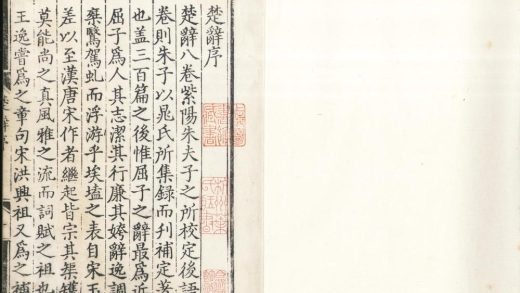 楚辭序
楚辭八卷紫陽朱夫子之所校定後語
卷則朱子以晁氏所集録而刋補定著
也盖三百篇之後惟屈子之辭最爲近
屈子爲人其志潔其行廉其姱辭逸調
椉鷖駕虬而浮游乎埃壒之表自宋玉
差以至漢唐宋作者繼起皆宗其榘矱
莫能尚之真風雅之流而詞賦之祖也
王逸嘗爲之章句宋洪興祖又爲之補